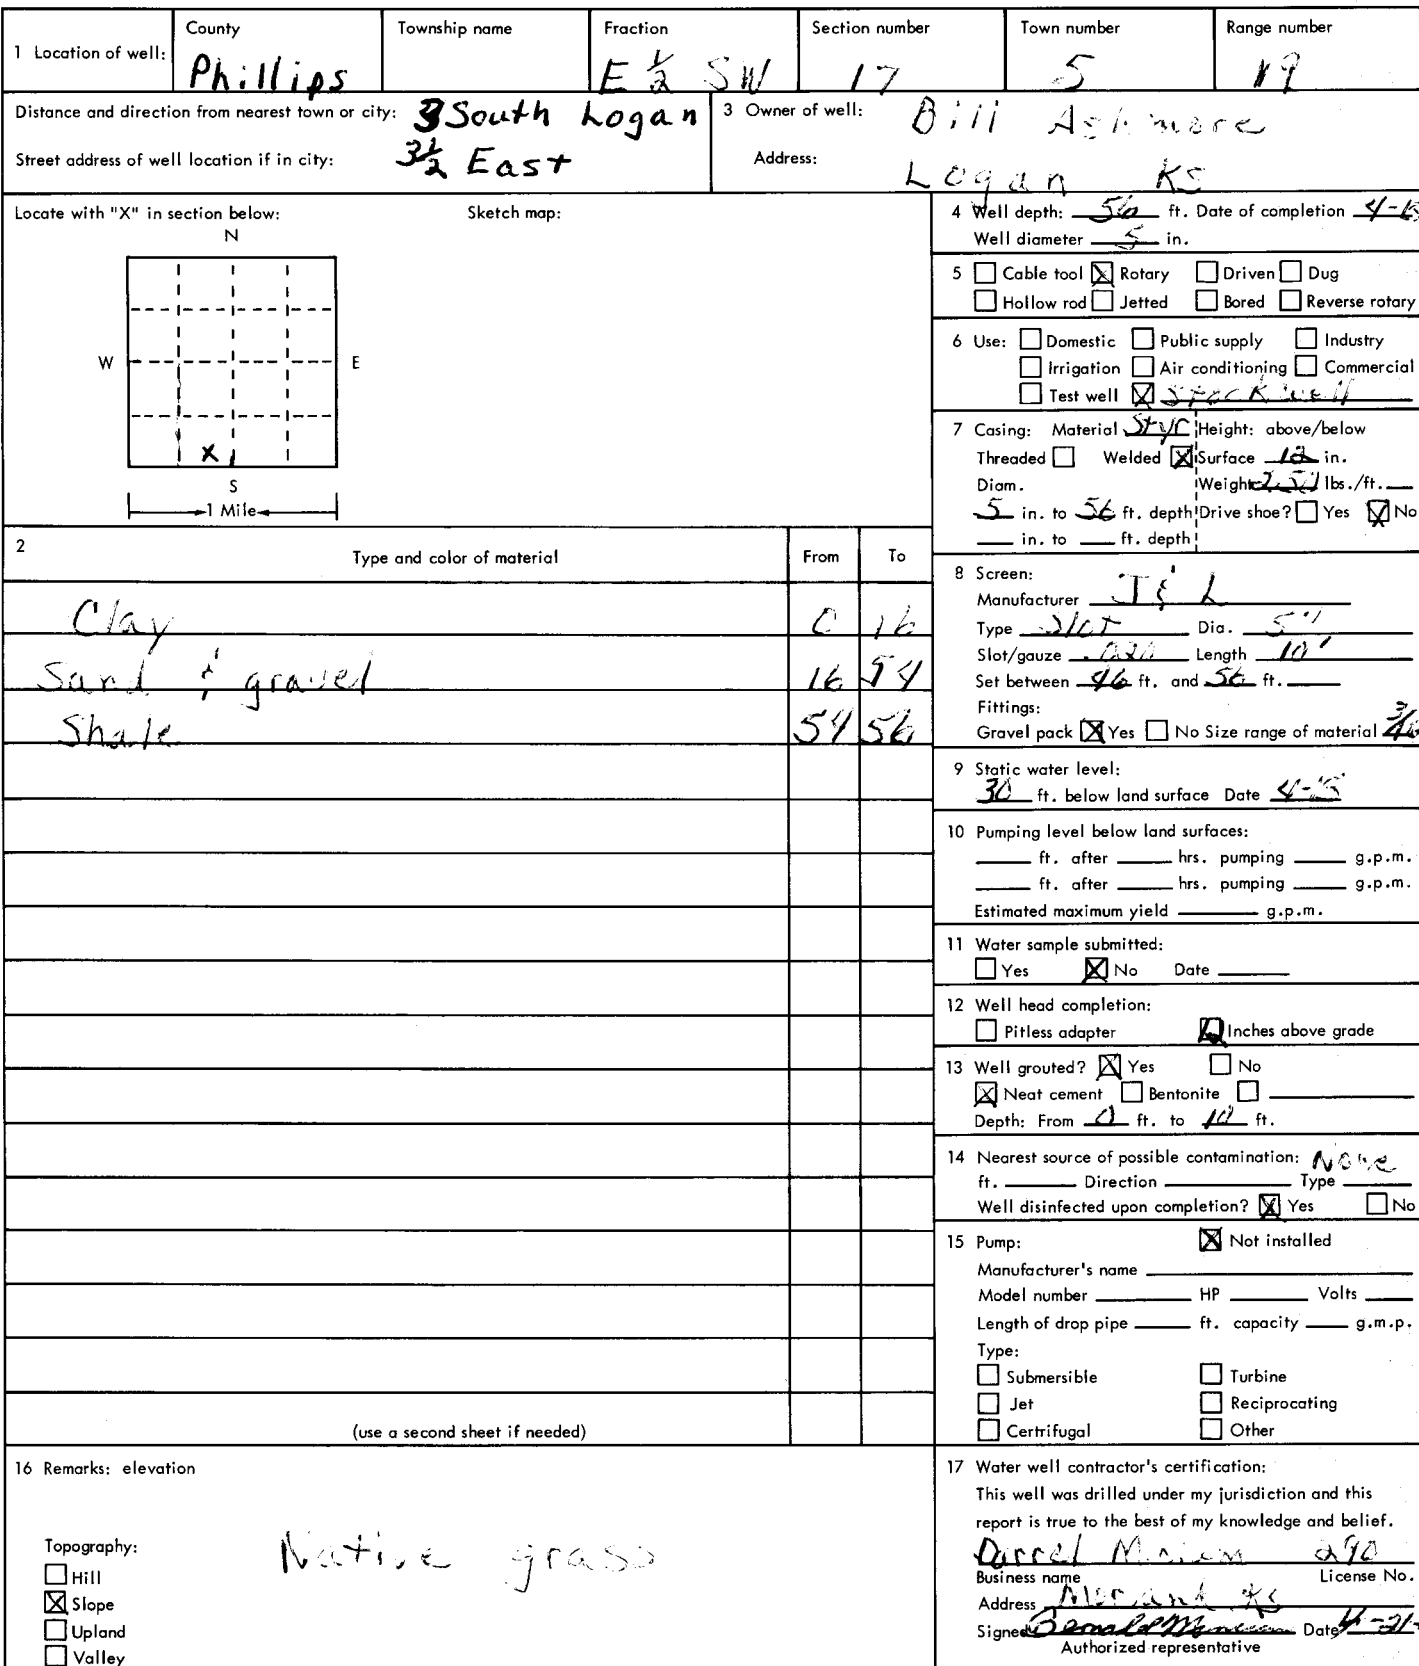 1 Location of well: County Phillips Township name Fraction E ½ SW Section number 17 Town number 5 Range number 19
Distance and direction from nearest town or city: 3 South Logan
Street address of well location if in city: 3½ East
3 Owner of well: Bill Ashmore
Address: Logan Ks
Locate with "X" in section below: Sketch map:
N
W E
X
S
1 Mile
4 Well depth: 56 ft. Date of completion 4-15
Well diameter 5 in.
5 Cable tool X Rotary Driven Dug
Hollow rod Jetted Bored Reverse rotary
6 Use: Domestic Public supply Industry
Irrigation Air conditioning Commercial
Test well X Stock well
7 Casing: Material Styr Height: above/below
Threaded Welded X Surface 12 in.
Diam. Weight lbs./ft.
5 in. to 56 ft. depth Drive shoe? Yes X No
in. to ft. depth
2 Type and color of material From To
Clay 0 16
Sand & gravel 16 54
Shale 54 56
(use a second sheet if needed)
8 Screen:
Manufacturer J & L
Type Slot Dia. 5"
Slot/gauze .020 Length 10'
Set between 46 ft. and 56 ft.
Fittings:
Gravel pack X Yes No Size range of material
9 Static water level:
30 ft. below land surface Date 4-15
10 Pumping level below land surfaces:
ft. after hrs. pumping g.p.m.
ft. after hrs. pumping g.p.m.
Estimated maximum yield g.p.m.
11 Water sample submitted:
Yes X No Date
12 Well head completion:
Pitless adapter Inches above grade
13 Well grouted? X Yes No
X Neat cement Bentonite
Depth: From 0 ft. to 10 ft.
14 Nearest source of possible contamination: None
ft. Direction Type
Well disinfected upon completion? X Yes No
15 Pump: X Not installed
Manufacturer's name
Model number HP Volts
Length of drop pipe ft. capacity g.m.p.
Type:
Submersible Turbine
Jet Reciprocating
Certrifugal Other
16 Remarks: elevation
Native grass
Topography:
Hill
X Slope
Upland
Valley
17 Water well contractor's certification:
This well was drilled under my jurisdiction and this
report is true to the best of my knowledge and belief.
Darrel 290
Business name License No.
Address Ks
Signed Date 4-21-
Authorized representative